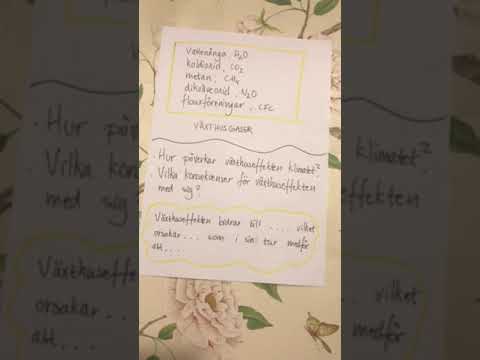 vattenånga, H2O
koldioxid, CO2
metan, CH4
dikväveoxid, N2O
fluorföreningar, CFC
VÄXTHUSGASER
. Hur påverkar växthuseffekten klimatet?
. Vilka konsekvenser för växthuseffekten
med sig?
Växthuseffekten bidrar till .... vilket
orsakar... som i sin tur medför
att....